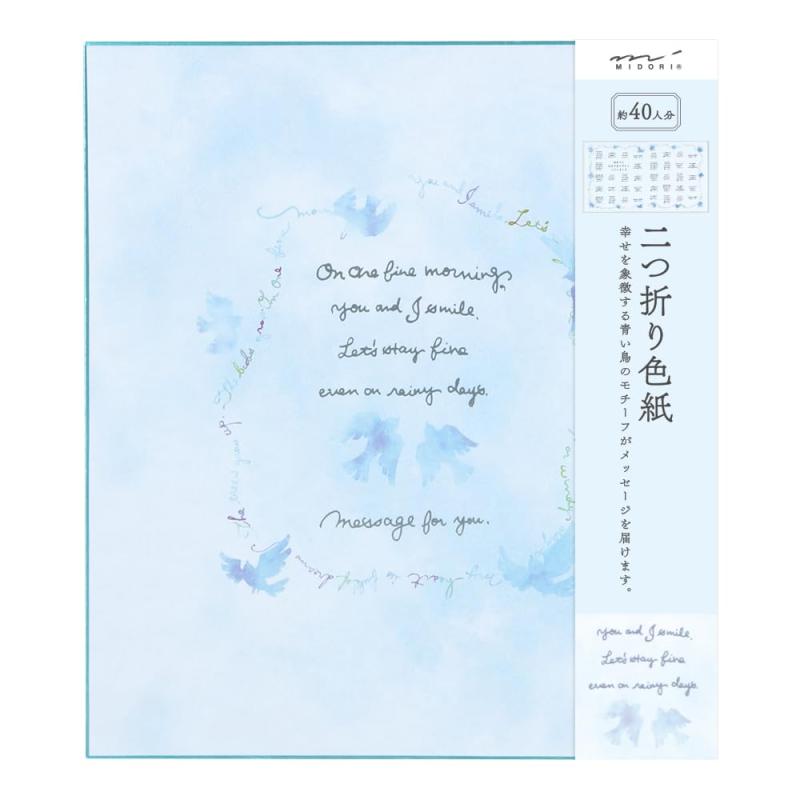 MIDORI®
約40人分
二つ折り色紙
幸せを象徴する青い鳥のモチーフがメッセージを届けます。
you and I smile. Let's
On one fine morning,
you and I smile.
Let's stay fine
even on rainy days.
message for you.
the trees grow up.
my heart is full of dreams
you and I smile.
Let's stay fine
even on rainy days.